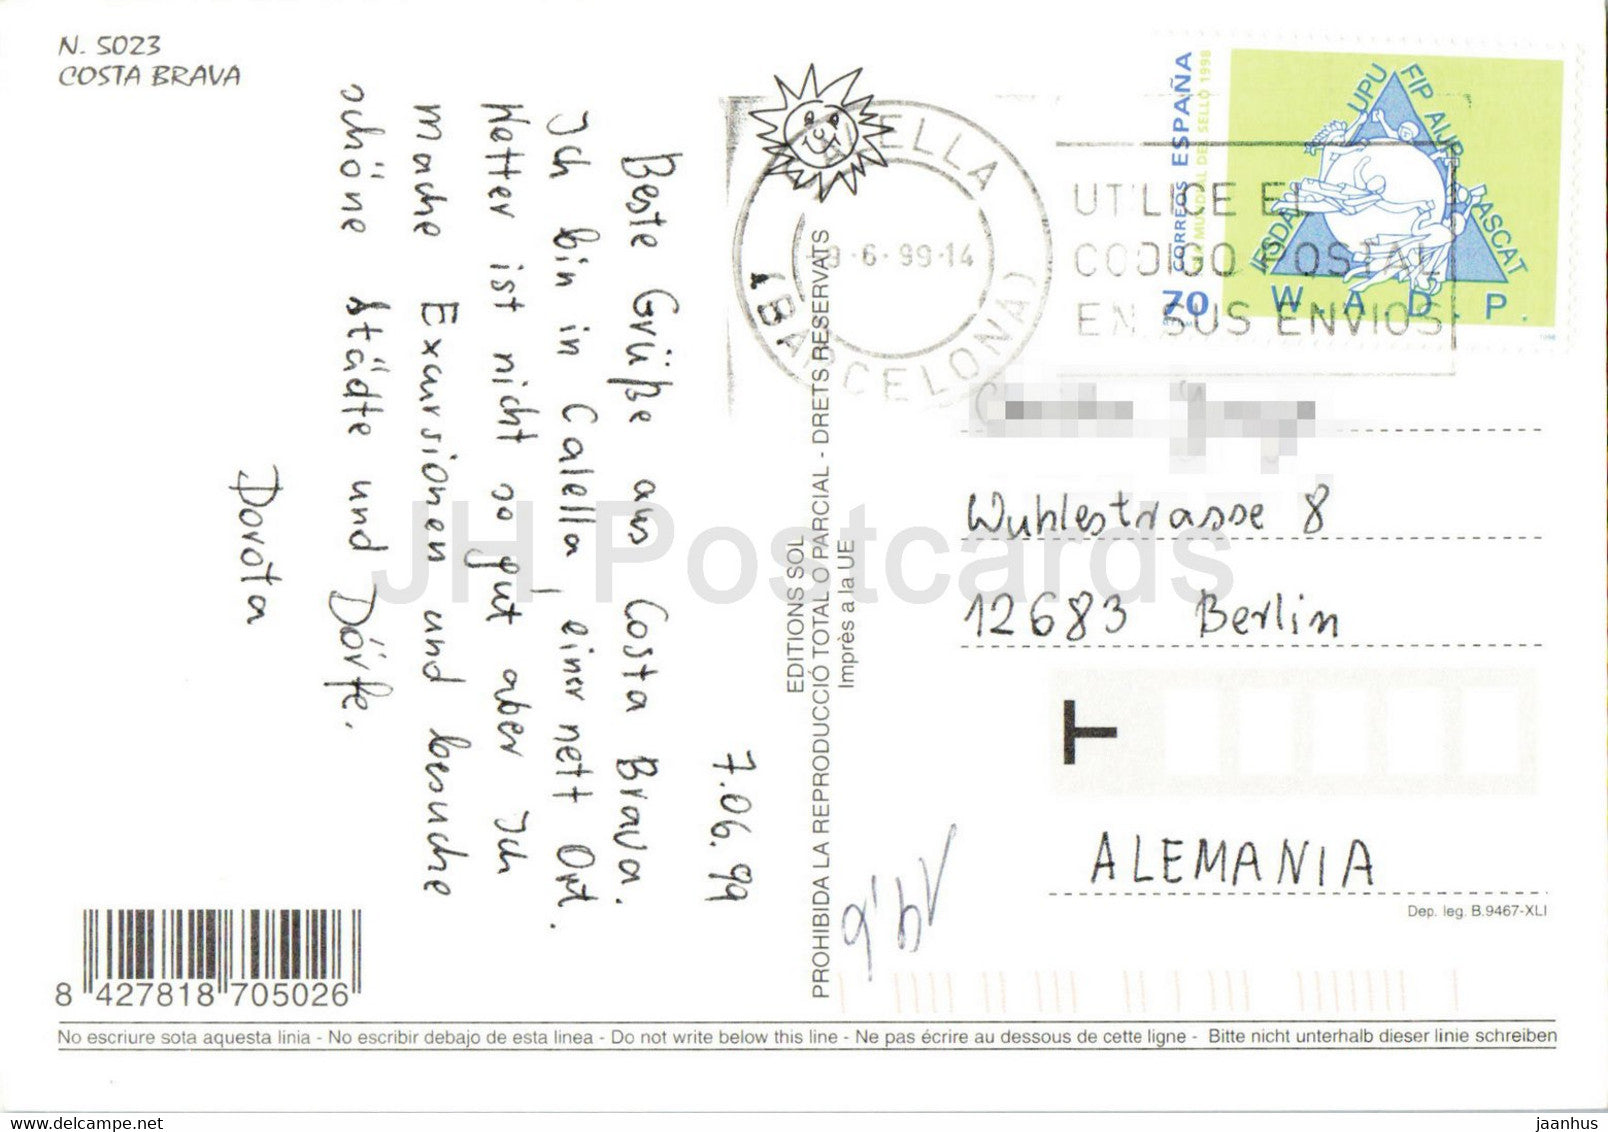 N. 5023
COSTA BRAVA
7.06.99
Beste Grüße aus Costa Brava.
Ich bin in Calella, einer nett Ort.
Wetter ist nicht so gut aber Ich
mache Exkursionen und besuche
schöne Städte und Dörfe.
Dorota
8 427818 705026
EDITIONS SOL
PROHIBIDA LA REPRODUCCIÓ TOTAL O PARCIAL - DRETS RESERVATS
Imprès a la UE
CALELLA
(BARCELONA)
9-6-99-14
UTILICE EL
CODIGO POSTAL
EN SUS ENVIOS
CORREOS ESPAÑA
DIA MUNDIAL DEL SELLO 1998
70
IFSDA UPU FIP AIJP ASCAT
W.A.D.P.
Wuhlestrasse 8
12683 Berlin
T
ALEMANIA
Dep. leg. B.9467-XLI
No escriure sota aquesta linia - No escribir debajo de esta linea - Do not write below this line - Ne pas écrire au dessous de cette ligne - Bitte nicht unterhalb dieser linie schreiben
JH Postcards
delcampe.net
jaanhus